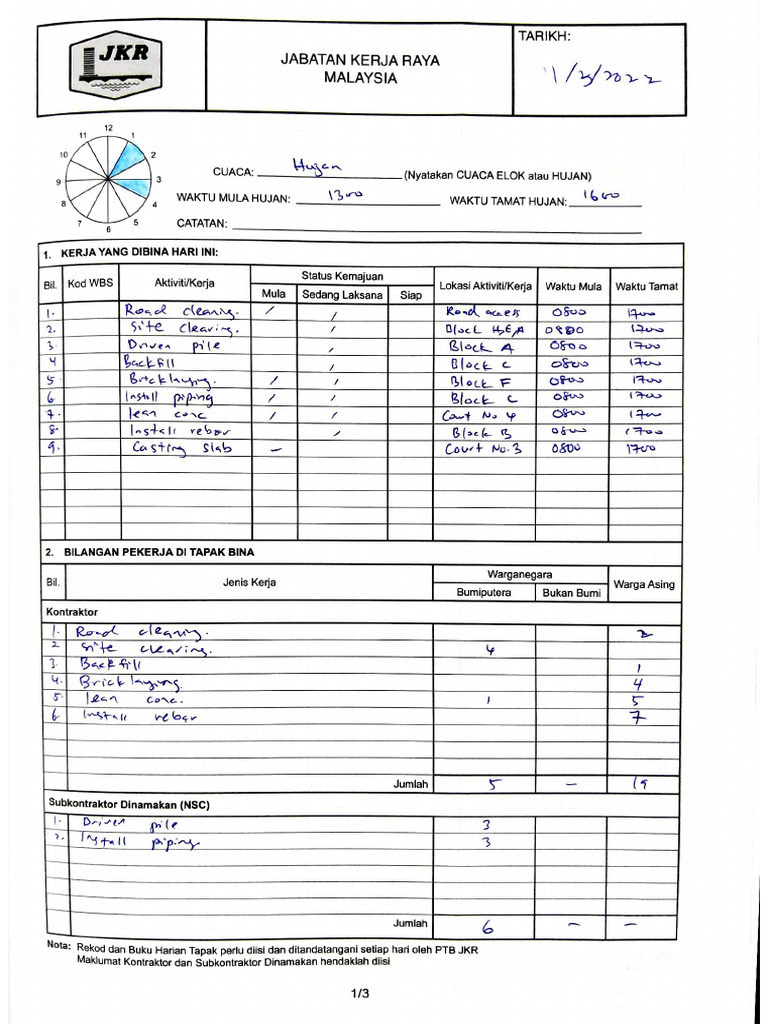 JKR
JABATAN KERJA RAYA
MALAYSIA
TARIKH:
1/3/2022
12
11 1
10 2
9 3
8 4
7 5
6
CUACA: Hujan (Nyatakan CUACA ELOK atau HUJAN)
WAKTU MULA HUJAN: 1300 WAKTU TAMAT HUJAN: 1600
CATATAN:
1. KERJA YANG DIBINA HARI INI:
Bil. Kod WBS Aktiviti/Kerja Status Kemajuan Lokasi Aktiviti/Kerja Waktu Mula Waktu Tamat
Mula Sedang Laksana Siap
1. Road clearing. / / Road access 0800 1700
2. Site clearing. / Block H,E,A 0800 1700
3. Driven pile / Block A 0800 1700
4 Backfill / Block C 0800 1700
5. Bricklaying. / / Block F 0800 1700
6 Install piping / / Block C 0800 1700
7. lean conc / / Court No 4 0800 1700
8. Install rebar / Block B 0800 1700
9. Casting slab - Court No.3 0800 1700
2. BILANGAN PEKERJA DI TAPAK BINA
Bil. Jenis Kerja Warganegara Warga Asing
Bumiputera Bukan Bumi
Kontraktor
1. Road clearing. 2
2 Site clearing. 4
3. Backfill 1
4. Bricklaying. 4
5. lean conc. 1 5
6 Install rebar 7
Jumlah 5 - 19
Subkontraktor Dinamakan (NSC)
1. Driven pile 3
2. Install piping 3
Jumlah 6 - -
Nota: Rekod dan Buku Harian Tapak perlu diisi dan ditandatangani setiap hari oleh PTB JKR
Maklumat Kontraktor dan Subkontraktor Dinamakan hendaklah diisi
1/3